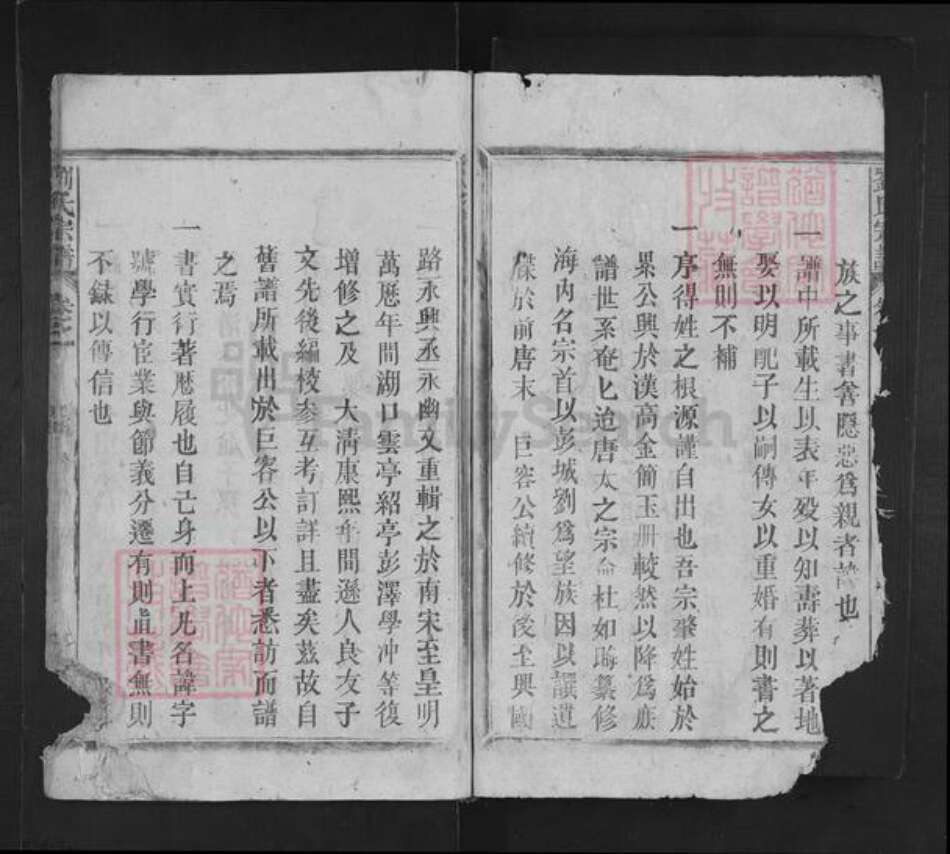 族之事書舍隱惡爲親者諱也
一譜中所載生以表年歿以知壽葬以著地
娶以明配子以嗣傳女以重婚有則書之
無則不補
一序得姓之根源謹自出也吾宗肇姓始於
累公興於漢高金簡玉冊較然以降爲族
譜世系奄匕迨唐太之宗命杜如晦纂修
海內名宗首以彭城劉爲望族因以譔遺
牒於前唐末 巨容公續修於後至興國
路永興丞永幽文重輯之於南宋至皇明
萬厯年間湖口雲亭紹亭彭澤學冲等復
增修之及 大清康熙年間遜人良友子
文先後編校參互考訂詳且盡矣茲故自
舊譜所載出於巨容公以下者悉訪而譜
之焉
一書實行著厯履也自亡身而上凡名諱字
號學行宦業與節義分遷有則直書無則
不録以傳信也
劉氏宗譜
卷之一
FamilySearch